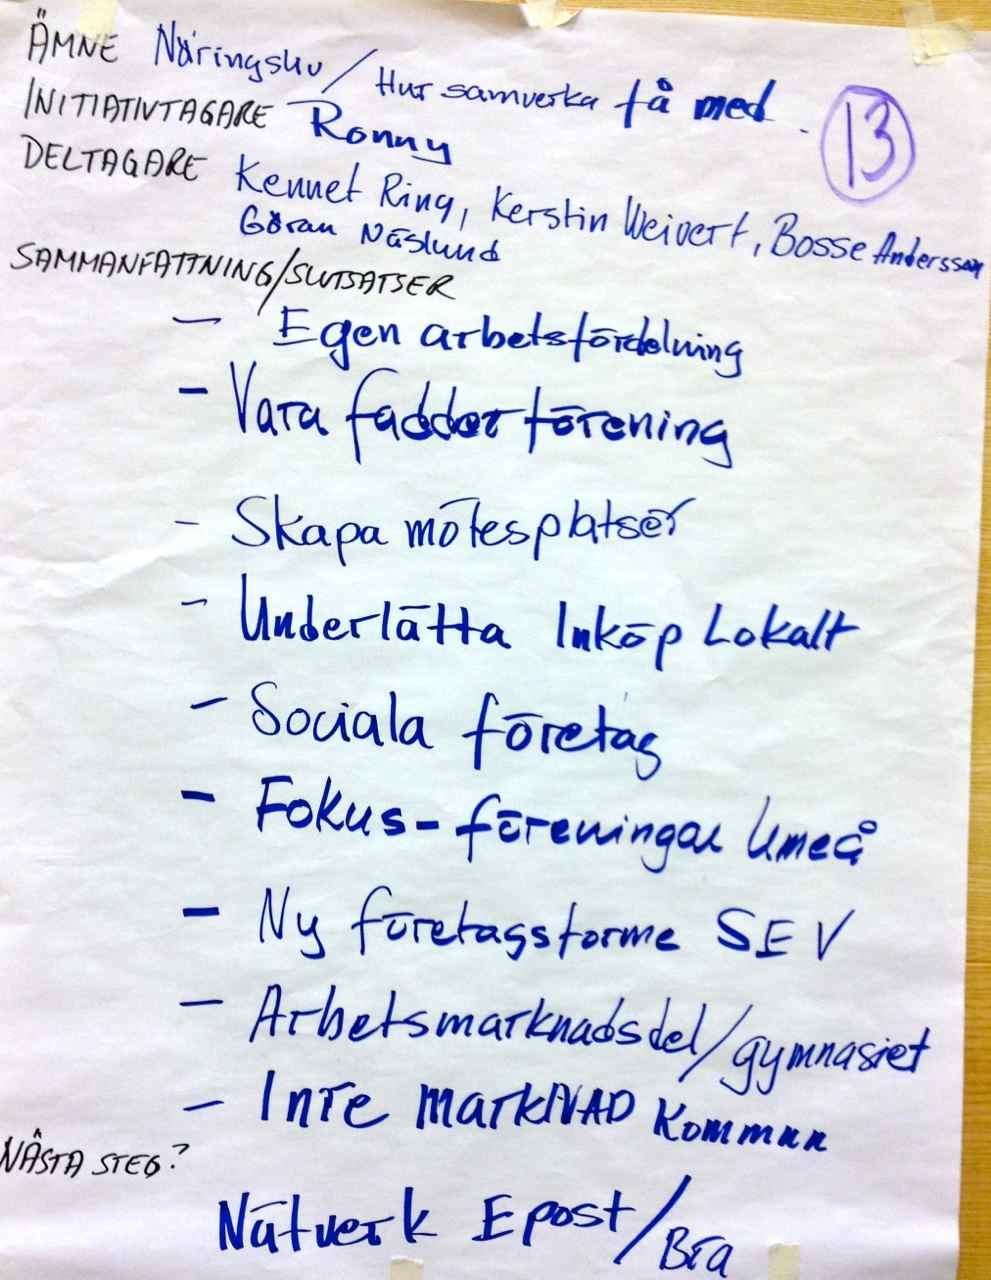 ÄMNE Näringsliv / Hur samverka få med.
13
INITIATIVTAGARE Ronny
DELTAGARE Kennet Ring, Kerstin Weivert, Bosse Andersson
Göran Näslund
SAMMANFATTNING/SLUTSATSER
- Egen arbetsfördelning
- Vara fadderförening
- Skapa mötesplatser
- Underlätta Inköp Lokalt
- Sociala företag
- Fokus-föreningar Umeå
- Ny företagsforme SEV
- Arbetsmarknadsdel/gymnasiet
- Inre markNAD kommun
NÄSTA STEG?
Nätverk Epost/Bra